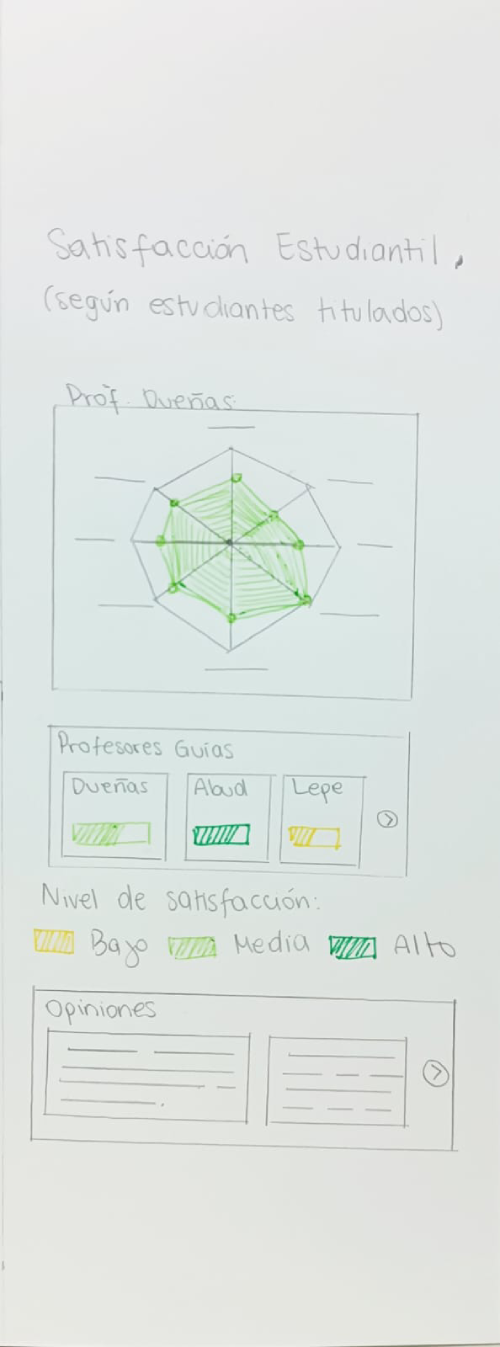 Satisfacción Estudiantil,
(según estudiantes titulados)
Prof. Dueñas
Profesores Guías
Dueñas Abud Lepe
Nivel de satisfacción:
Bajo Media Alto
Opiniones